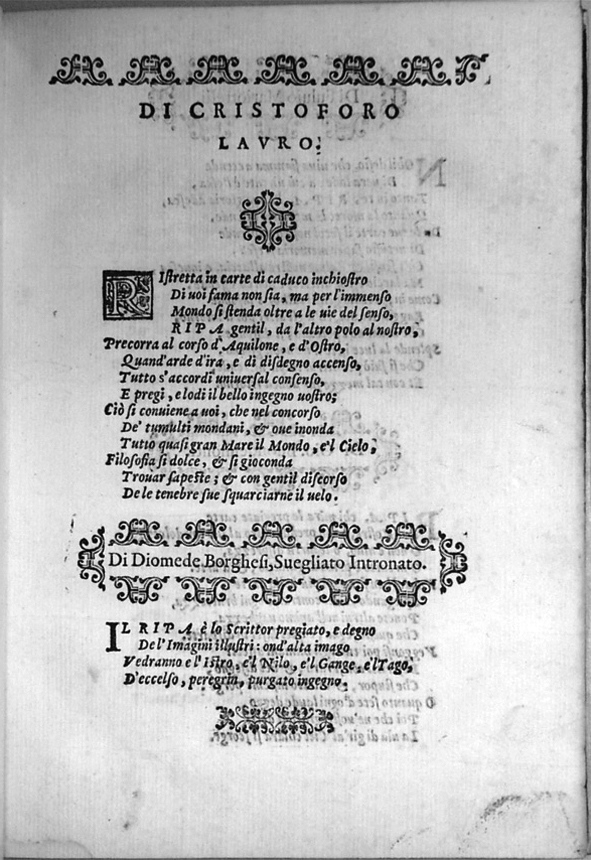 DI CRISTOFORO
LAVRO.
RIstretta in carte di caduco inchiostro
Di uoi fama non sia, ma per l'immenso
Mondo si stenda oltre a le uie del senso,
RIPA gentil, da l'altro polo al nostro,
Precorra al corso d'Aquilone, e d'Ostro,
Quand'arde d'ira, e di disdegno accenso,
Tutto s'accordi uniuersal consenso,
E pregi, e lodi il bello ingegno uostro;
Ciò si conuiene a uoi, che nel concorso
De' tumulti mondani, & oue inonda
Tutto quasi gran Mare il Mondo, e'l Cielo,
Filosofia si dolce, & si gioconda
Trouar sapeste; & con gentil discorso
De le tenebre sue squarciarne il uelo.
Di Diomede Borghesi, Suegliato Intronato.
IL RIPA è lo Scrittor pregiato, e degno
De l'Imagini illustri: ond'alta imago
Vedranno e l'Istro, e'l Nilo, e'l Gange, e'l Tago,
D'eccelso, peregrin, purgato ingegno.